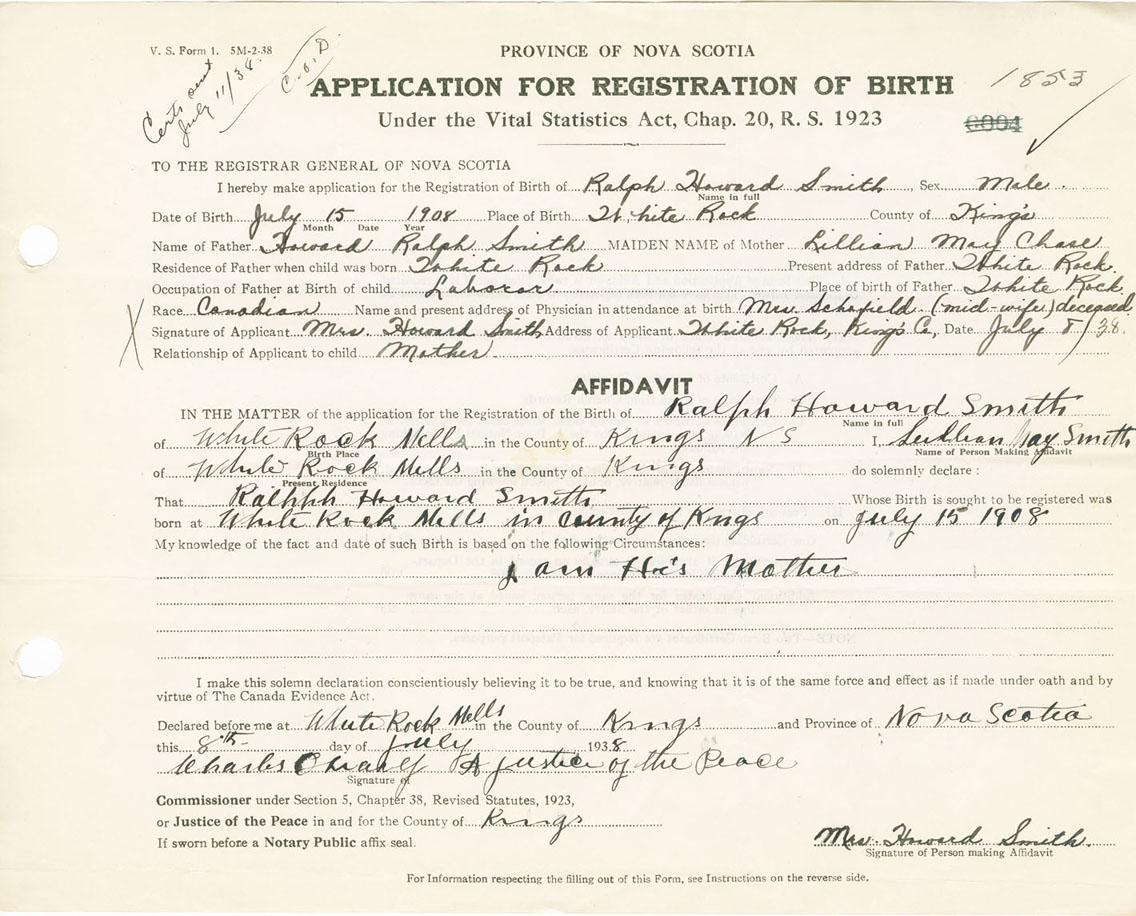 V. S. Form 1. 5M-2-38
Certs out
July 11/38.
C.O.D
PROVINCE OF NOVA SCOTIA
APPLICATION FOR REGISTRATION OF BIRTH
1853
Under the Vital Statistics Act, Chap. 20, R. S. 1923
6004
TO THE REGISTRAR GENERAL OF NOVA SCOTIA
I hereby make application for the Registration of Birth of Ralph Howard Smith, Sex Male.
Name in full
Date of Birth July 15 1908 Place of Birth White Rock County of King's
Month Date Year
Name of Father Howard Ralph Smith MAIDEN NAME of Mother Lillian May Chase
Residence of Father when child was born White Rock Present address of Father White Rock.
Occupation of Father at Birth of child Laboror Place of birth of Father White Rock
Race Canadian Name and present address of Physician in attendance at birth Mrs. Schofield (mid-wife) deceased
X Signature of Applicant Mrs. Howard Smith Address of Applicant White Rock, King's Co., Date July 8/38.
Relationship of Applicant to child Mother
AFFIDAVIT
IN THE MATTER of the application for the Registration of the Birth of Ralph Howard Smith
Name in full
of White Rock Mills in the County of Kings N S I, May Smith
Birth Place Name of Person Making Affidavit
of White Rock Mills in the County of Kings do solemnly declare:
Present Residence
That Ralhph Howard Smith Whose Birth is sought to be registered was
born at White Rock Mills in county of Kings on july 15 1908
My knowledge of the fact and date of such Birth is based on the following Circumstances:
I am His Mother
I make this solemn declaration conscientiously believing it to be true, and knowing that it is of the same force and effect as if made under oath and by
virtue of The Canada Evidence Act.
Declared before me at White Rock Mills in the County of Kings and Province of Nova Scotia
this 8th day of july 1938
Charles A justice of the Peace
Signature of
Commissioner under Section 5, Chapter 38, Revised Statutes, 1923,
or Justice of the Peace in and for the County of Kings
If sworn before a Notary Public affix seal.
Mrs. Howard Smith.
Signature of Person making Affidavit
For Information respecting the filling out of this Form, see Instructions on the reverse side.